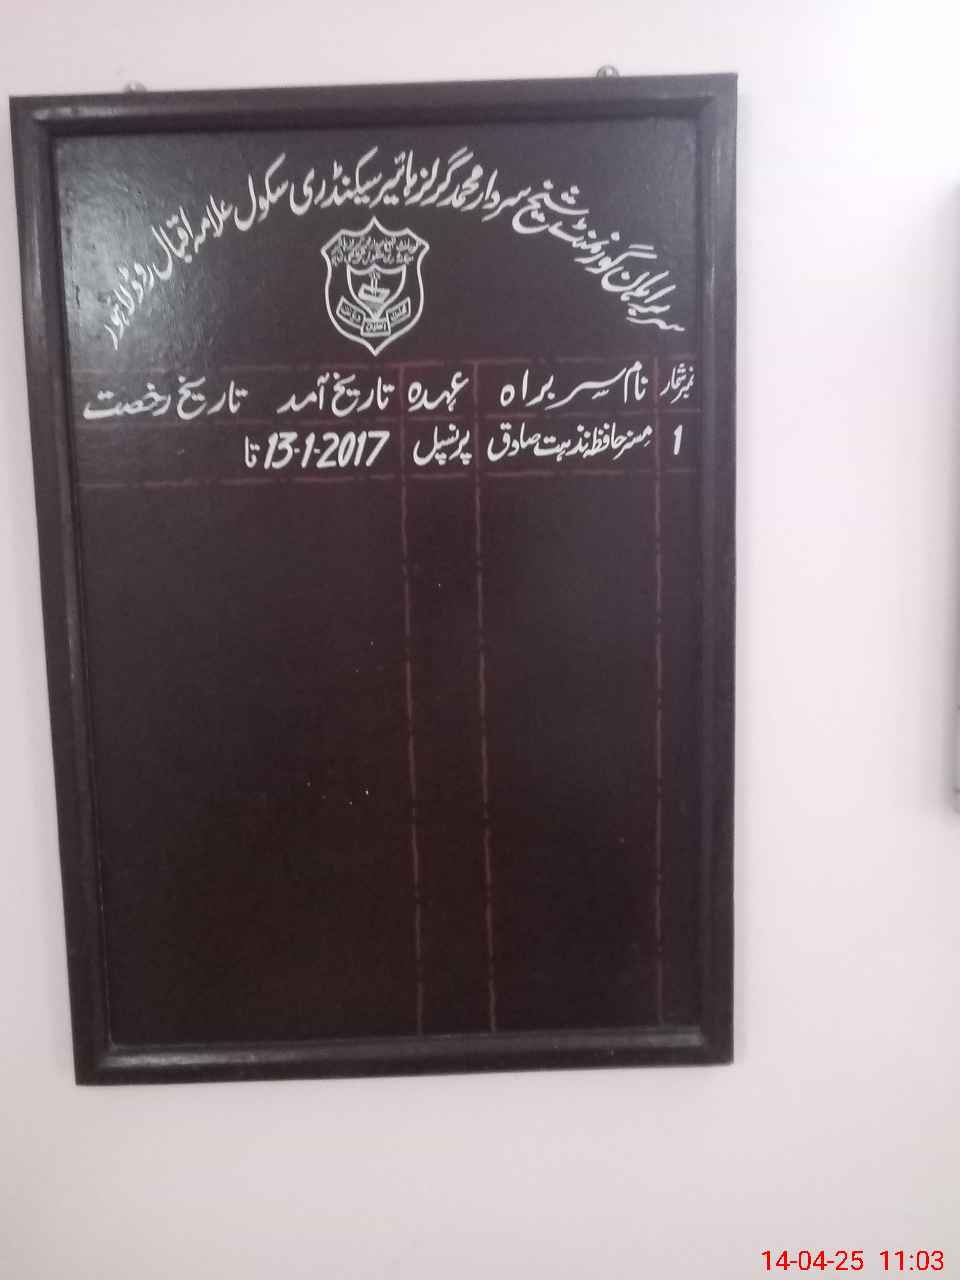 سربراہان گورنمنٹ شیخ سردار محمد گرلز ہائیر سیکنڈری سکول علامہ اقبال روڈ لاہور
نمبر شمار نام سربراہ عہدہ تاریخ آمد تاریخ رخصت
1 مسز حافظہ نذہت صادق پرنسپل 13-1-2017 تا
14-04-25 11:03